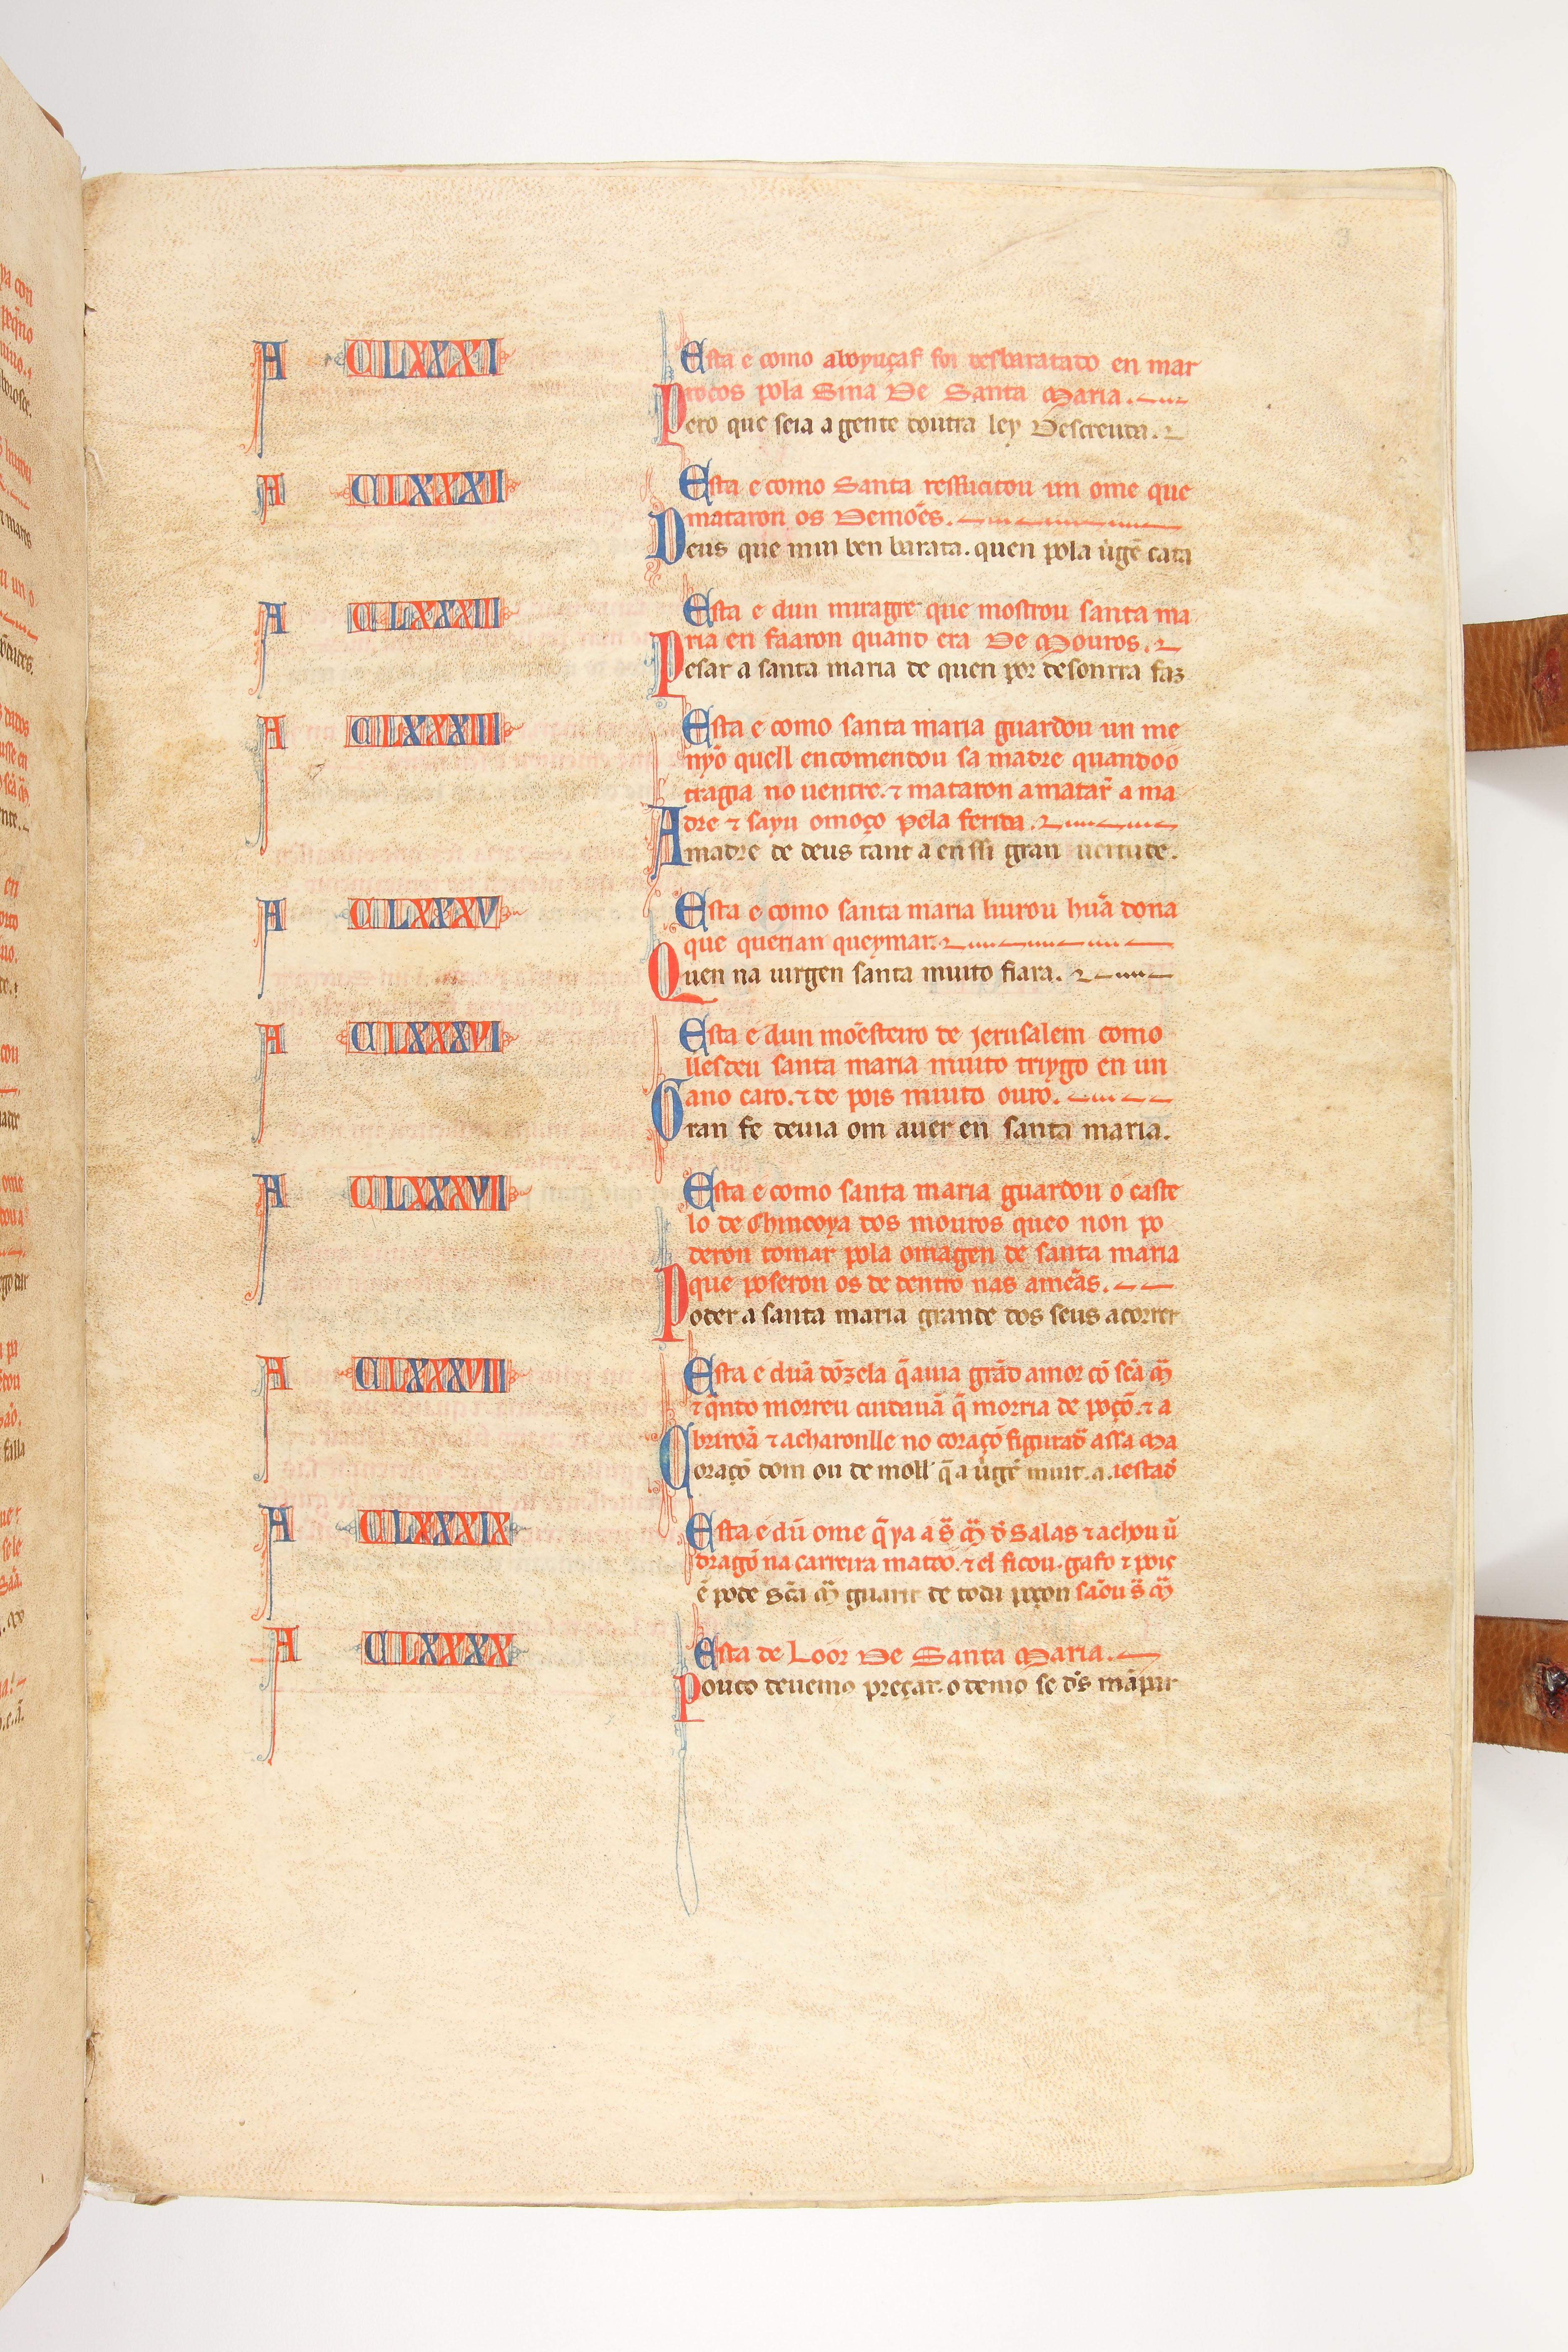 A CLXXXI
Esta e como aboyuçaf foi desbaratado en mar
rocos pola Sina De Santa Maria.
Pero que seia a gente doutra ley Descreuda.
A CLXXXII
Esta e como Santa resſucitou un ome que
mataron os Demões.
Deus que mui ben barata. quen pola uigẽ cata
A CLXXXIII
Esta e dun miragre que mostrou santa ma
ria en faaron quand era De Mouros.
Pesar a santa maria de quen por desonrra faz
A CLXXXIIII
Esta e como santa maria guardou un me
nỹo quell encomendou sa madre quandoo
tragia no uentre. ⁊ mataron a matar̃ a ma
dre ⁊ sayu o moço pela ferida.
A madre de deus tant a en ssi gran uertude.
A CLXXXV
Esta e como santa maria liurou hũa dona
que querian queymar.
Quen na uirgen santa muito fiara.
A CLXXXVI
Esta e dun mõesteiro de jerusalem como
lles deu santa maria muito triygo en un
ano caro. ⁊ de pois muito ouro.
Gran fe deuia om auer en santa maria.
A CLXXXVII
Esta e como santa maria guardou o caste
lo de Chincoya dos mouros queo non po
deron tomar pola omagen de santa maria
que poseron os de dentro nas amẽas.
Poder a santa maria grande dos seus acorrer
A CLXXXVIII
Esta e dũa dõzela q̃ auia grãd amor cõ sc̃ã M̃
⁊ q̃ndo morreu cuidauã q̃ morria de poçõ. ⁊ a
brirõã ⁊ acharonlle no coraçõ figurad̃ assa Ma
Coraçõ dom ou de moll' q̃ a uigẽ muit. a. iestad̃
A CLXXXIX
Esta e dũ ome q̃ ya a s̃ M̃ d̃ Salas ⁊ achou ũ
dragõ na carreira matoo. ⁊ el ficou. gafo ⁊ pois
ẽ pode sc̃ã M̃ guarir de toda poçon sãou s̃ M̃
A CLXXXX
Esta de Loor De Santa Maria.
Pouco deuemo preçar. o demo se d̃s mãpar